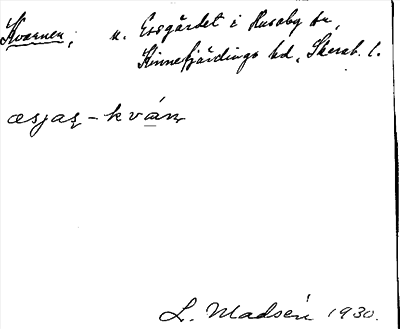 Kvarnen, u. Essgårdet i Husaby sn,
Kinnefjärdings hd, Skarab. l.
æsjaʂ - kván
L. Madsén 1930.